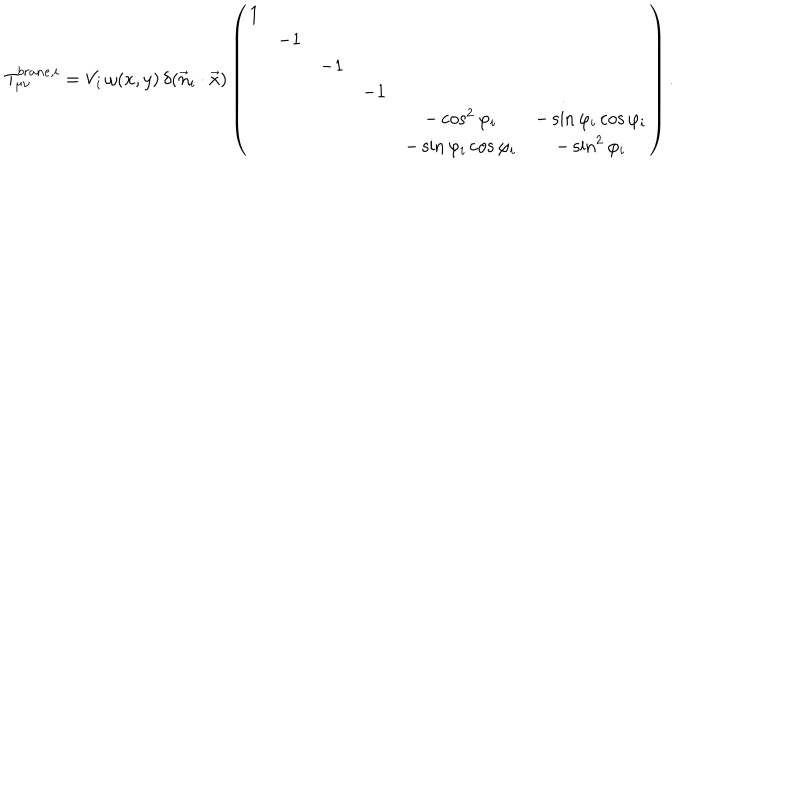 $T_{\mu\nu}^{brane,i} = V_i \, \omega(x,y) \, \delta(\vec{n}_i \cdot \vec{x}) \begin{pmatrix} 1 & & & & & \\ & -1 & & & & \\ & & -1 & & & \\ & & & -1 & & \\ & & & & -\cos^2 \varphi_i & -\sin \varphi_i \cos \varphi_i \\ & & & & -\sin \varphi_i \cos \varphi_i & -\sin^2 \varphi_i \end{pmatrix} .$